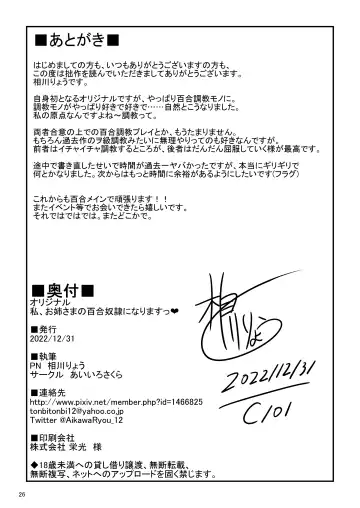 ■あとがき■
はじめましての方も、いつもありがとうございますの方も、
この度は拙作を読んでいただきましてありがとうございます。
相川りょうです。
自身初となるオリジナルですが、やっぱり百合調教モノに。
調教モノがやっぱり好きで好きで……自然とこうなりました。
私の原点なんですよね～調教って。
両者合意の上での百合調教プレイとか、もうたまりません。
もちろん過去作のヲ級調教みたいに無理やりってのも好きなんですが。
前者はイチャイチャ調教するところが、後者はだんだん屈服していく様が最高です。
途中で書き直したせいで時間が過去一ヤバかったですが、本当にギリギリで
何とかなりました。次からはもっと時間に余裕があるようにしたいです(フラグ)
これからも百合メインで頑張ります！！
またイベント等でお会いできたら嬉しいです。
それではではでは。またどこかで。
■奥付■
オリジナル
私、お姉さまの百合奴隷になりますっ❤
■発行
2022/12/31
■執筆
PN　相川りょう
サークル　あいいろさくら
■連絡先
http://www.pixiv.net/member.php?id=1466825
tonbitonbi12@yahoo.co.jp
Twitter @AikawaRyou_12
■印刷会社
株式会社 栄光　様
◆18歳未満への貸し借り譲渡、無断転載、
無断複写、ネットへのアップロードを固く禁じます。
相川りょう
2022/12/31
C101
26